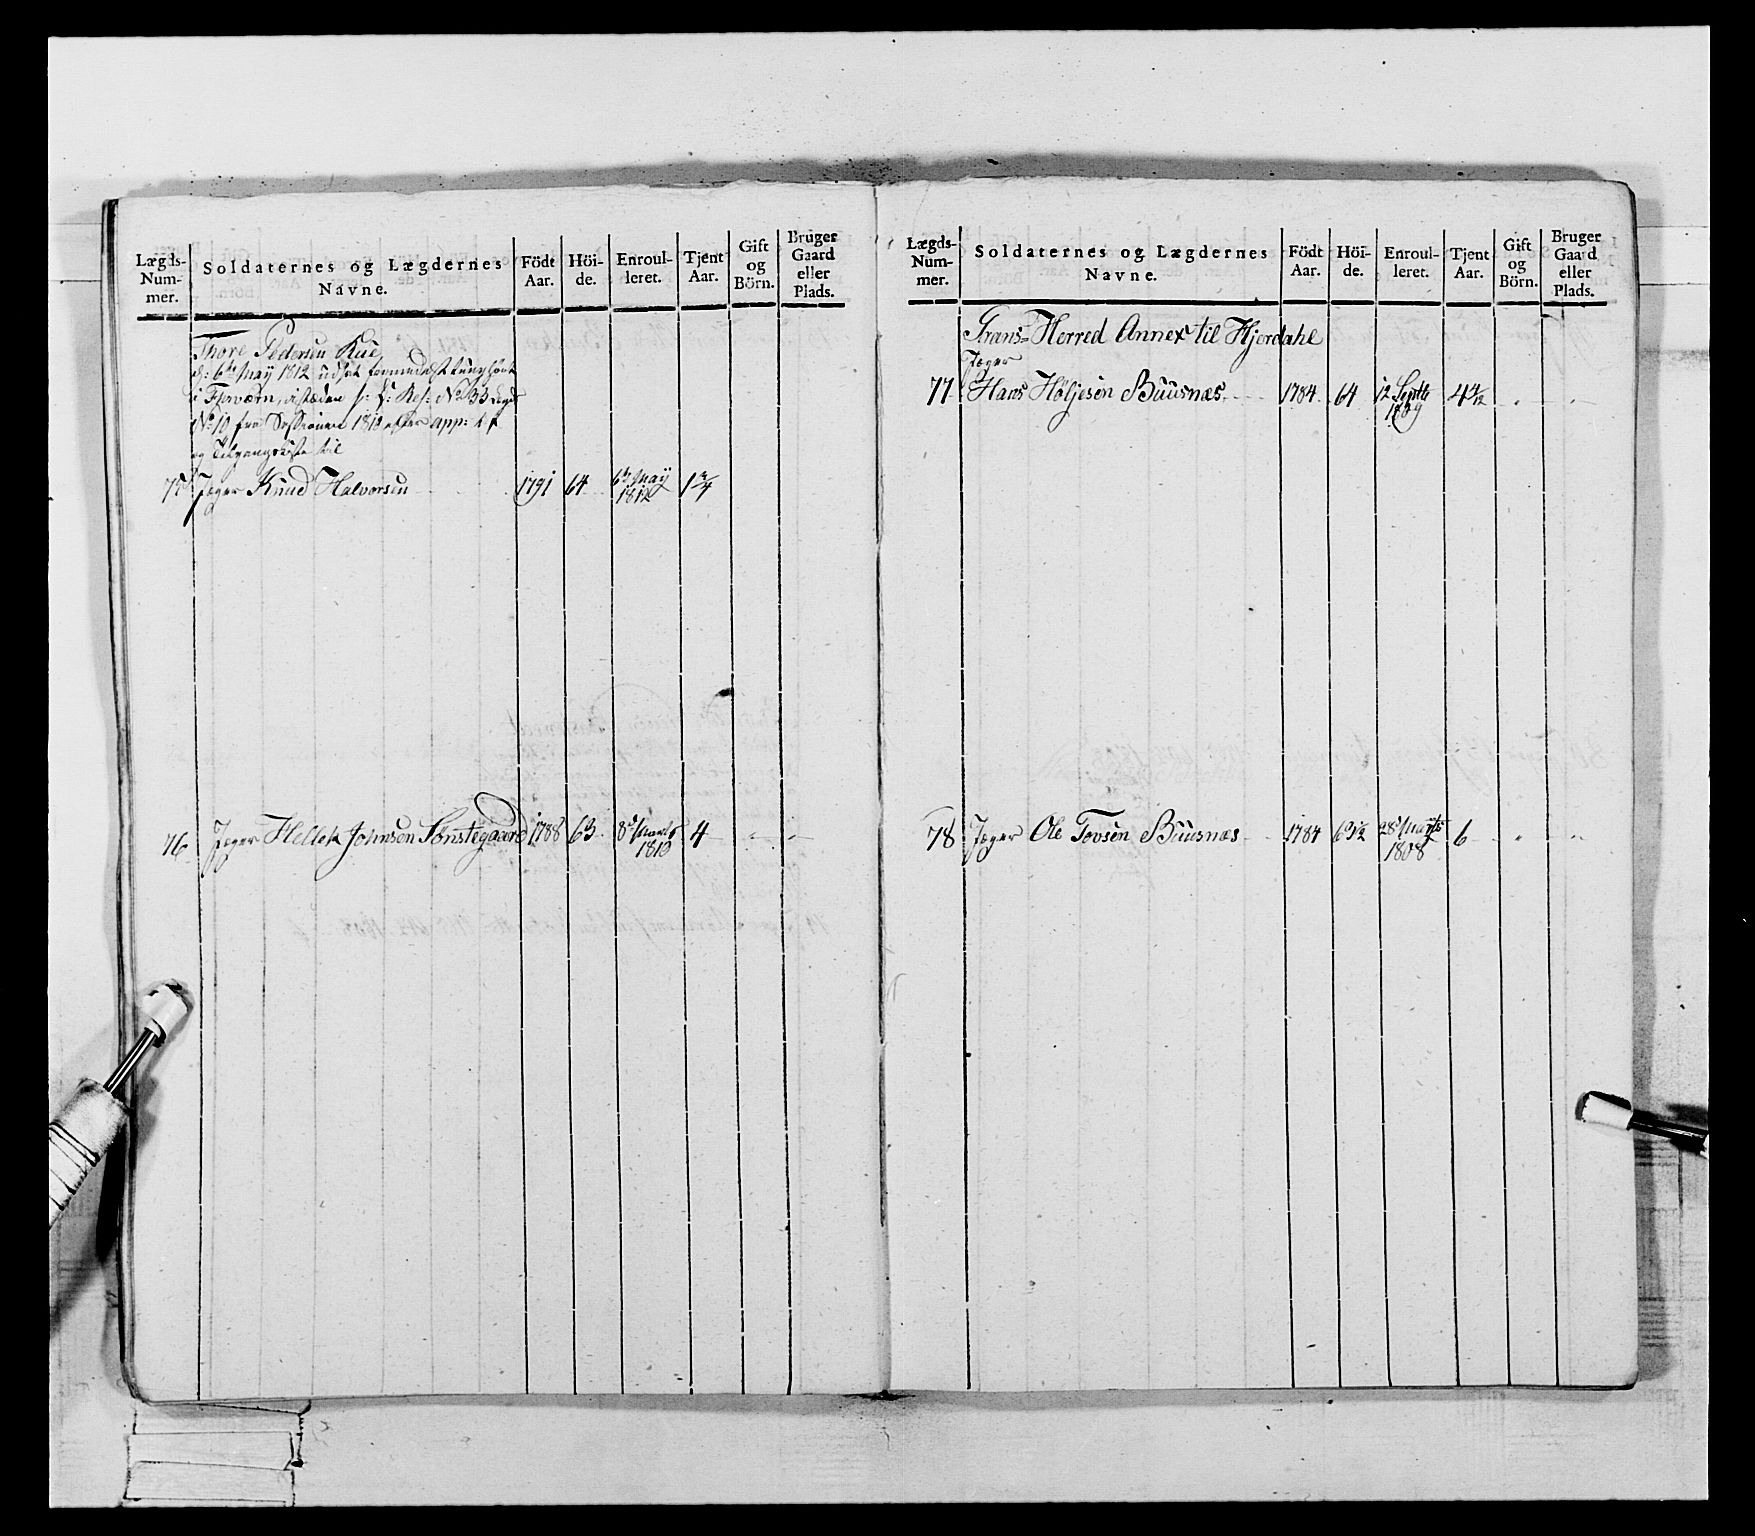 Lægds-Num-mer. Soldaternes og Lægdernes Navne. Födt Aar. Höi-de. Enroul-leret. Tjent Aar. Gift og Börn. Bruger Gaard eller Plads.
Thore Pedersen Rue
d: 6te Maÿ 1812 udsat formedelst
i Fjerværn, istæden s: L: Res: No 33 Lægd
No 10 fra Sessionen 1812 efter app: Af
og Tilgangsliste til
75 Jæger Knud Halvorsen 1791 64 6te Maÿ 1812 1 3/4
76 Jæger Hellek Johnsen Sönstegaard 1788 63 8de Marts 1810 4 - -
Lægds-Num-mer. Soldaternes og Lægdernes Navne. Födt Aar. Höi-de. Enroul-leret. Tjent Aar. Gift og Börn. Bruger Gaard eller Plads.
Grans-Herred Annex til Hjerdahl
Jæger
77 Hans Höljesen Buusnæs 1784 64 12 Septb 1809 4 4/12 - -
78 Jæger Ole Tovsen Buusnæs 1784 63 1/2 28de Marts 1808 6 " "